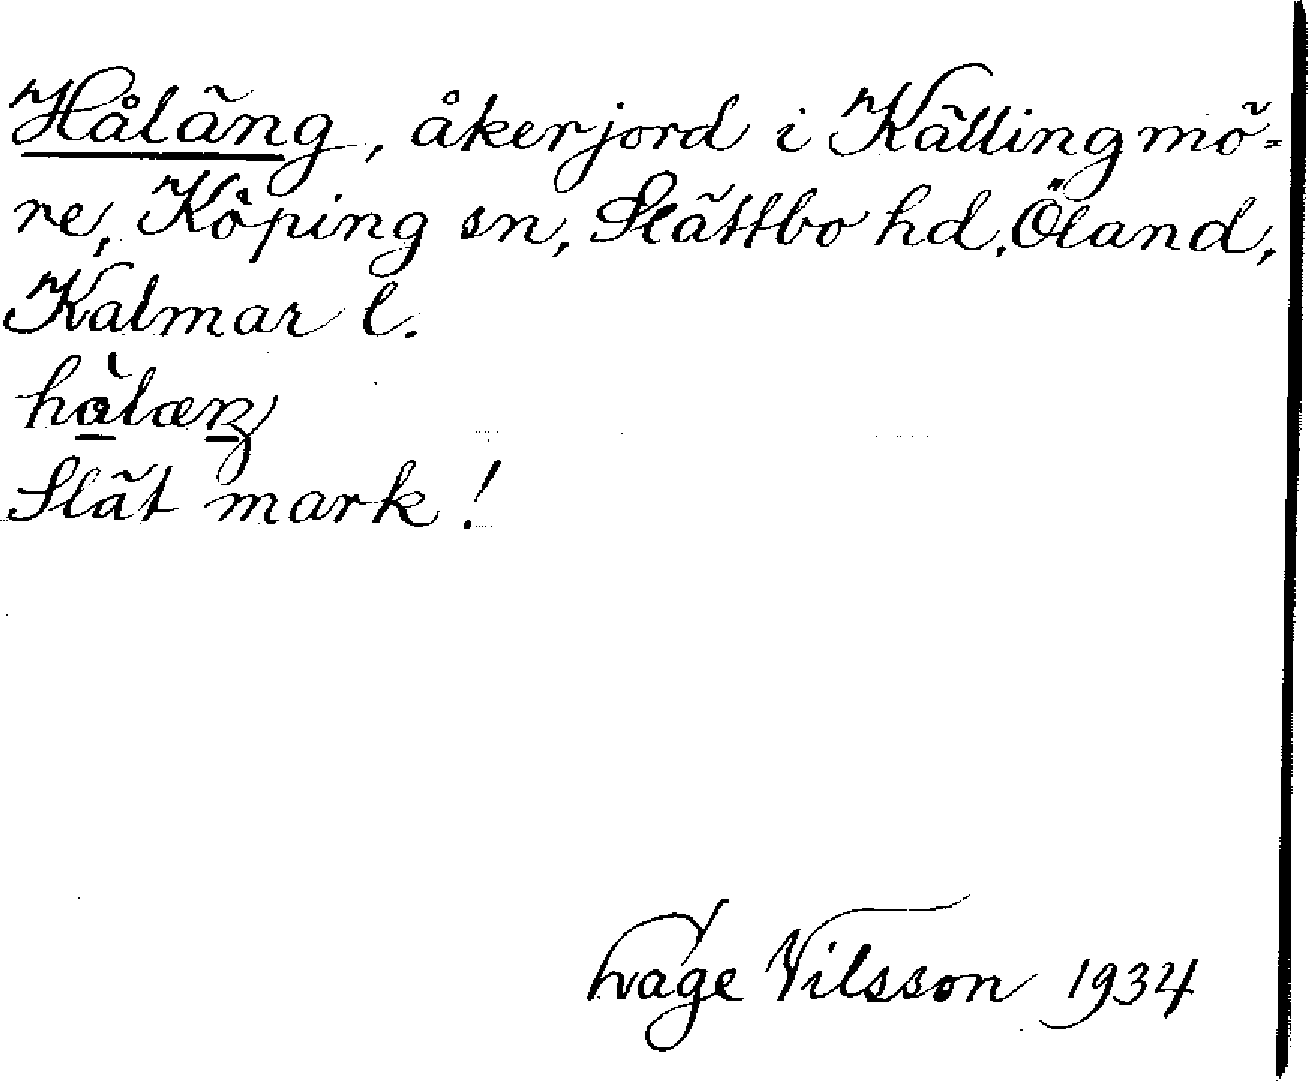 Håläng, åkerjord i Källingmö-
re, Köping sn, Slättbo hd, Öland,
Kalmar l.
hålæŋ
Slät mark!
Nilsson 1934